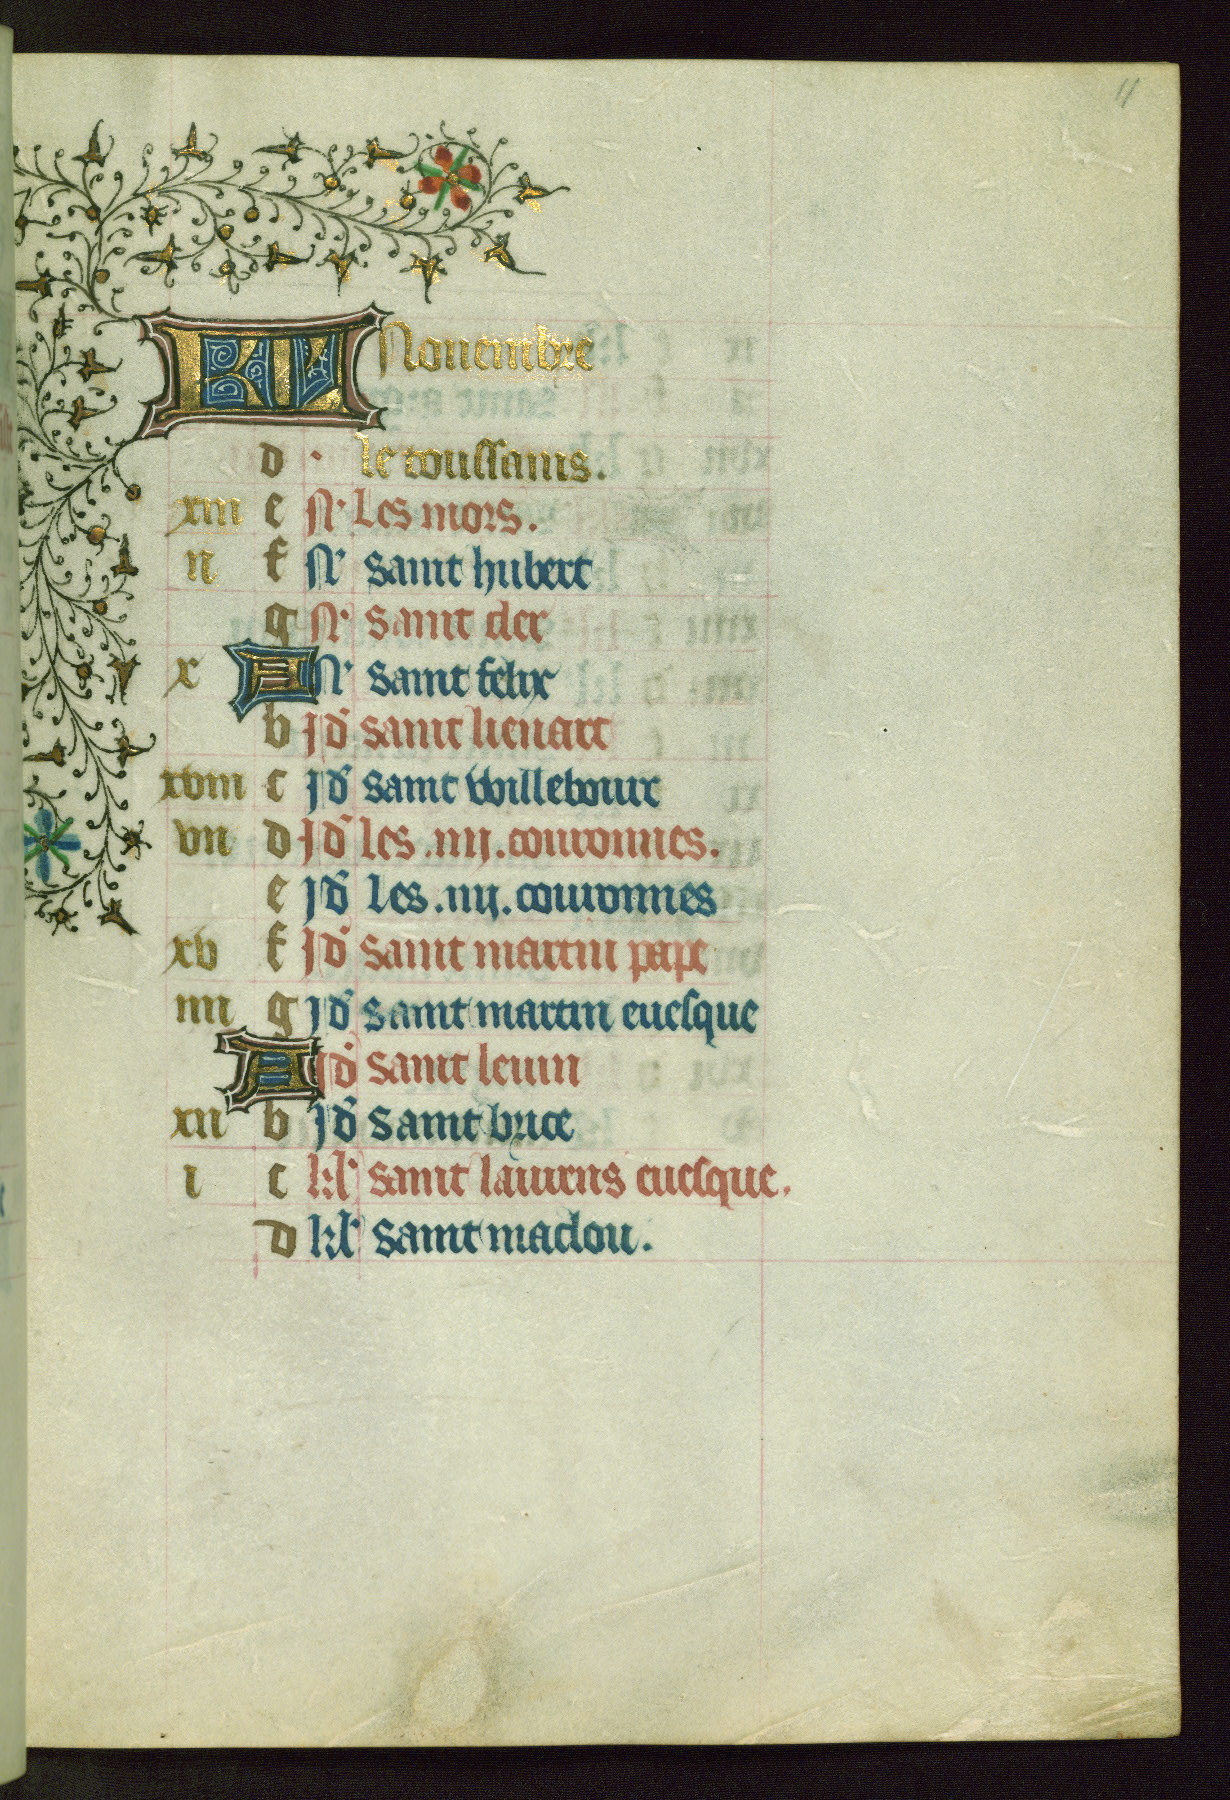 11
KL Nouembre
d . le toussains.
xiii e N. Les mors.
ii f N. saint hubert
g N. saint cler
x A N. saint felix
b Jd saint lienart
xviii c Jd saint Willebourt
vii d Jd les .iiij. couronnes.
e Jd Les .iiij. couronnes
xv f Jd saint martin pape
iiii g Jd saint martin euesque
A Jd saint leuin
xii b Jd saint brice
i c kl. saint laurens euesque.
d kl. saint maclou.